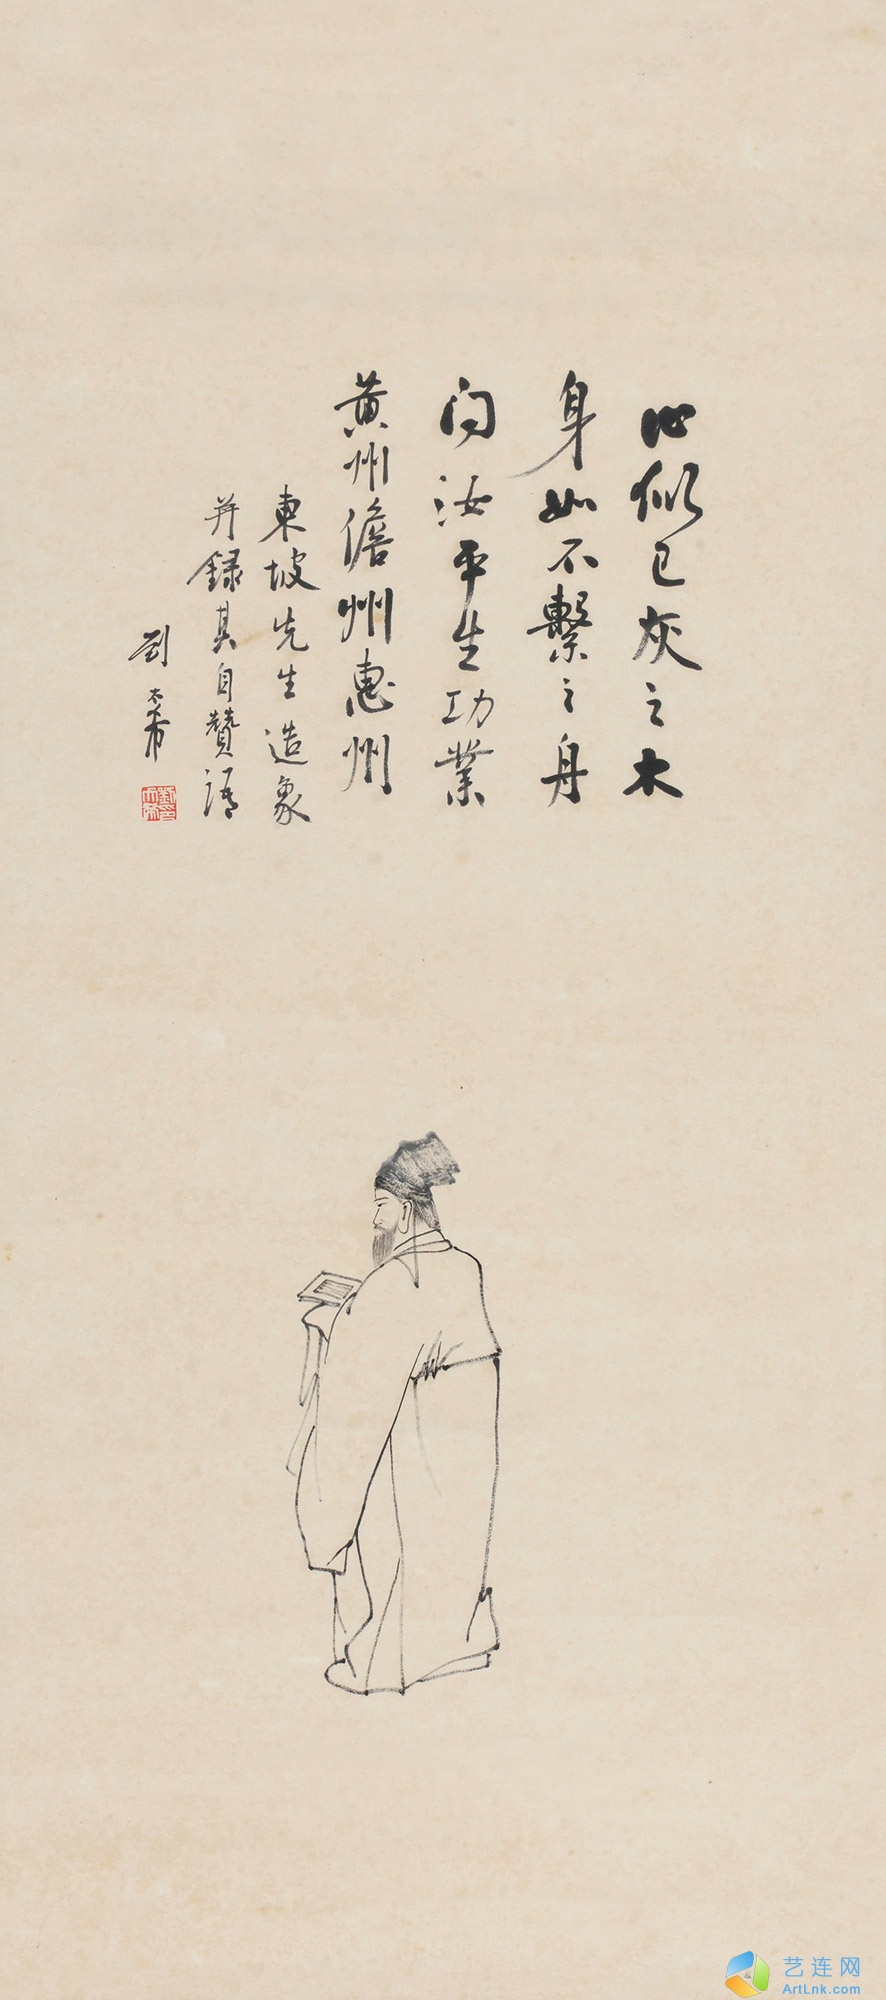 心似已灰之木
身如不繫之舟
问汝平生功業
黄州儋州惠州
東坡先生造象
并録其自贊語
劉太希
艺连网
ArtLnk.com